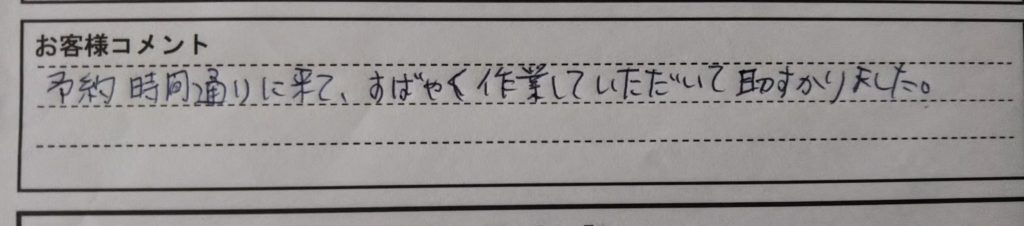 お客様コメント
予約時間通りに来て、すばやく作業していただいて助すかりました。